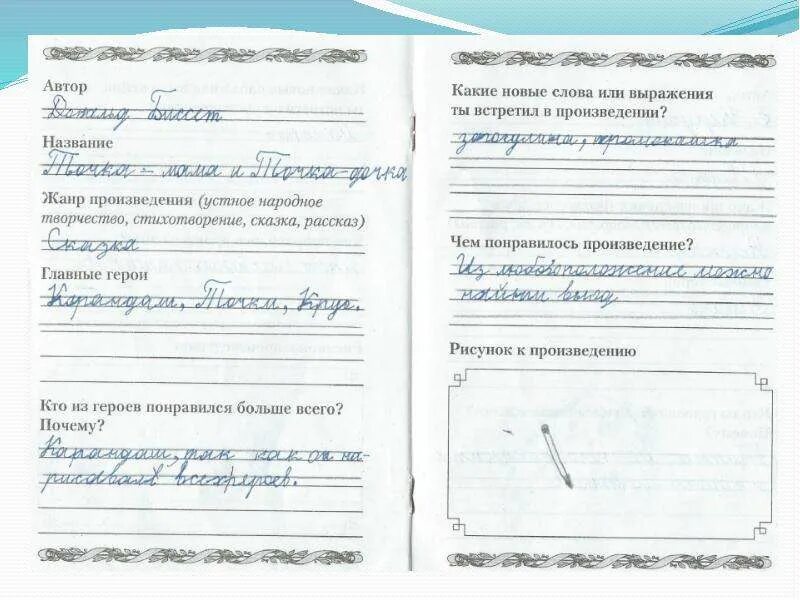 Автор
Дональд Биссет
Название
Точка – мама и Точка-дочка
Жанр произведения (устное народное
творчество, стихотворение, сказка, рассказ)
Сказка
Главные герои
Карандаш, Точки, Круг.
Кто из героев понравился больше всего?
Почему?
Карандаш, так как он на-
рисовал всех героев.
Какие новые слова или выражения
ты встретил в произведении?
загогулина, промокашка
Чем понравилось произведение?
Из любого положение можно
найти выход
Рисунок к произведению